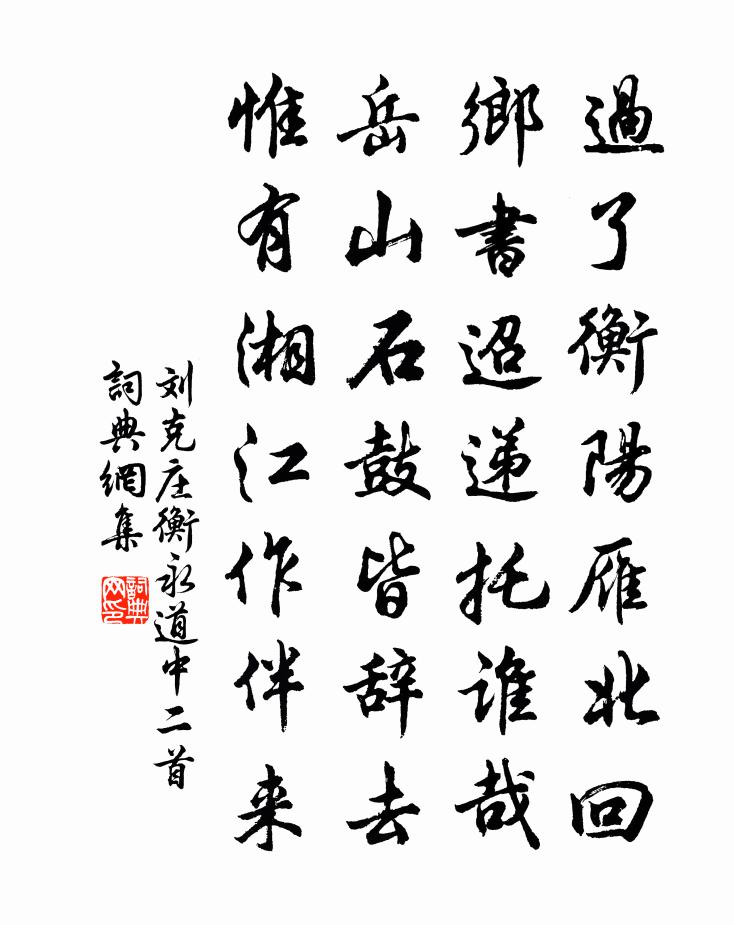 過了衡陽雁北回
鄉書迢递托誰哉
岳山石鼓皆辞去
惟有湘江作伴来
刘克庄衡永道中二首
詞典網集
詞典